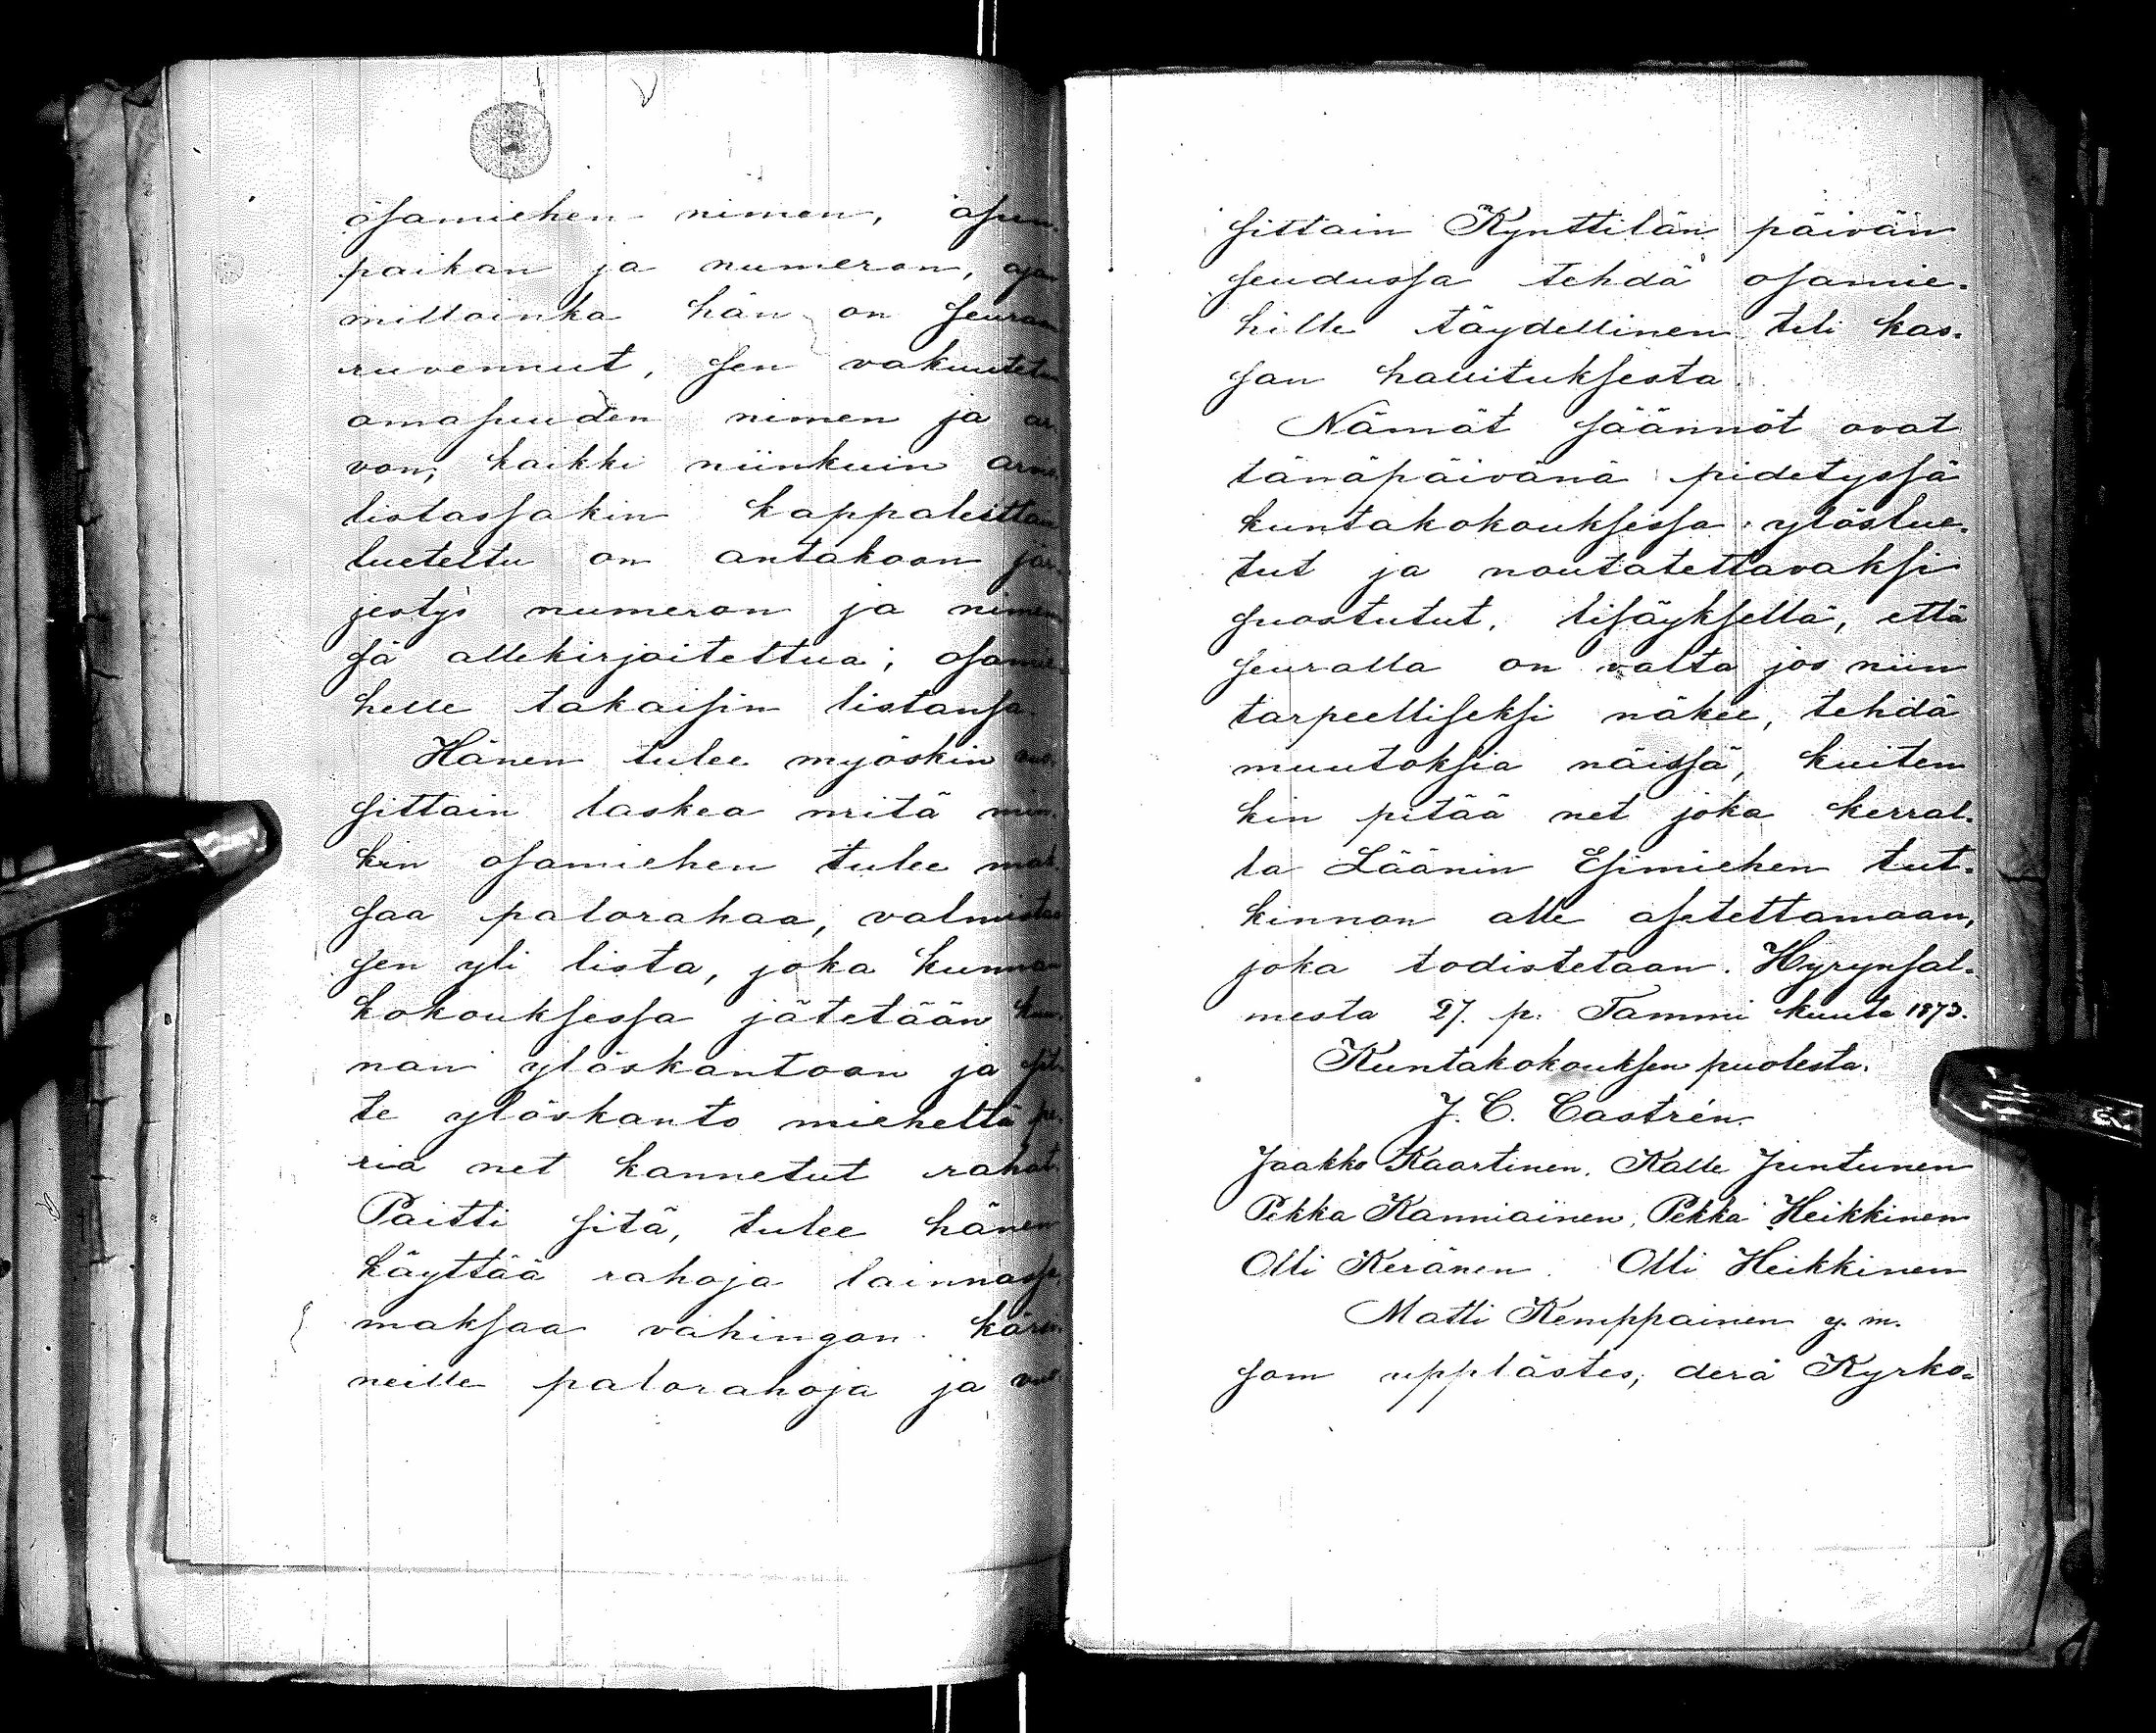 osamiehen nimen, asun-
paikan ja numeron, ajan
milloinka hän on seuraan
ruvennut, sen vakuutetu
omasuuden nimen ja ar-
von, kaikki niinkuin arvo-
listassakin kappaleittan
lueteltu on antakoon jär-
jestys numeron ja nimen
sä allekirjoitettua; osamie-
helle takaisin listansa.
Hänen tulee myöskin vuo-
sittain laskea mitä min-
kin osamiehen tulee mak-
saa palorahaa, valmistaa
sen yli lista, joka kunnan
kokouksessa jätetään kun-
nan ylöskantoon ja sit-
te ylöskanto mieheltä pe-
riä net kannetut rahat.
Paitti sitä, tulee hänen
käyttää rahoja lainnassa,
maksaa vahingon kärsi-
neille palorahoja ja vuo-
sittain Kynttilän päivän
seudussa tehdä osamie-
hille täydellinen tili kas-
san hallituksesta.
Nämät säännöt ovat
tänäpäivänä pidetyssä
kuntakokouksessa ylöslue-
tut ja noutatettavaksi
suostutut, lisäyksellä, että
seuralla on valta jos niin
tarpeelliseksi näkee, tehdä
muutoksia näissä, kuiten
kin pitää net joka kerral-
la Läänin Esimiehen tut-
kinnon alle asetettamaan,
joka todistetaan. Hyrynsal-
mesta 27. p. Tammi kuuta 1873.
Kuntakokouksen puolesta.
J. C. Castrén.
Jaakko Kaartinen. Kalle Juntunen
Pekka Kanniainen, Pekka Heikkinen
Olli Keränen. Olli Heikkinen
Matti Kemppainen y. m.
som upplästes, derå Kyrko-